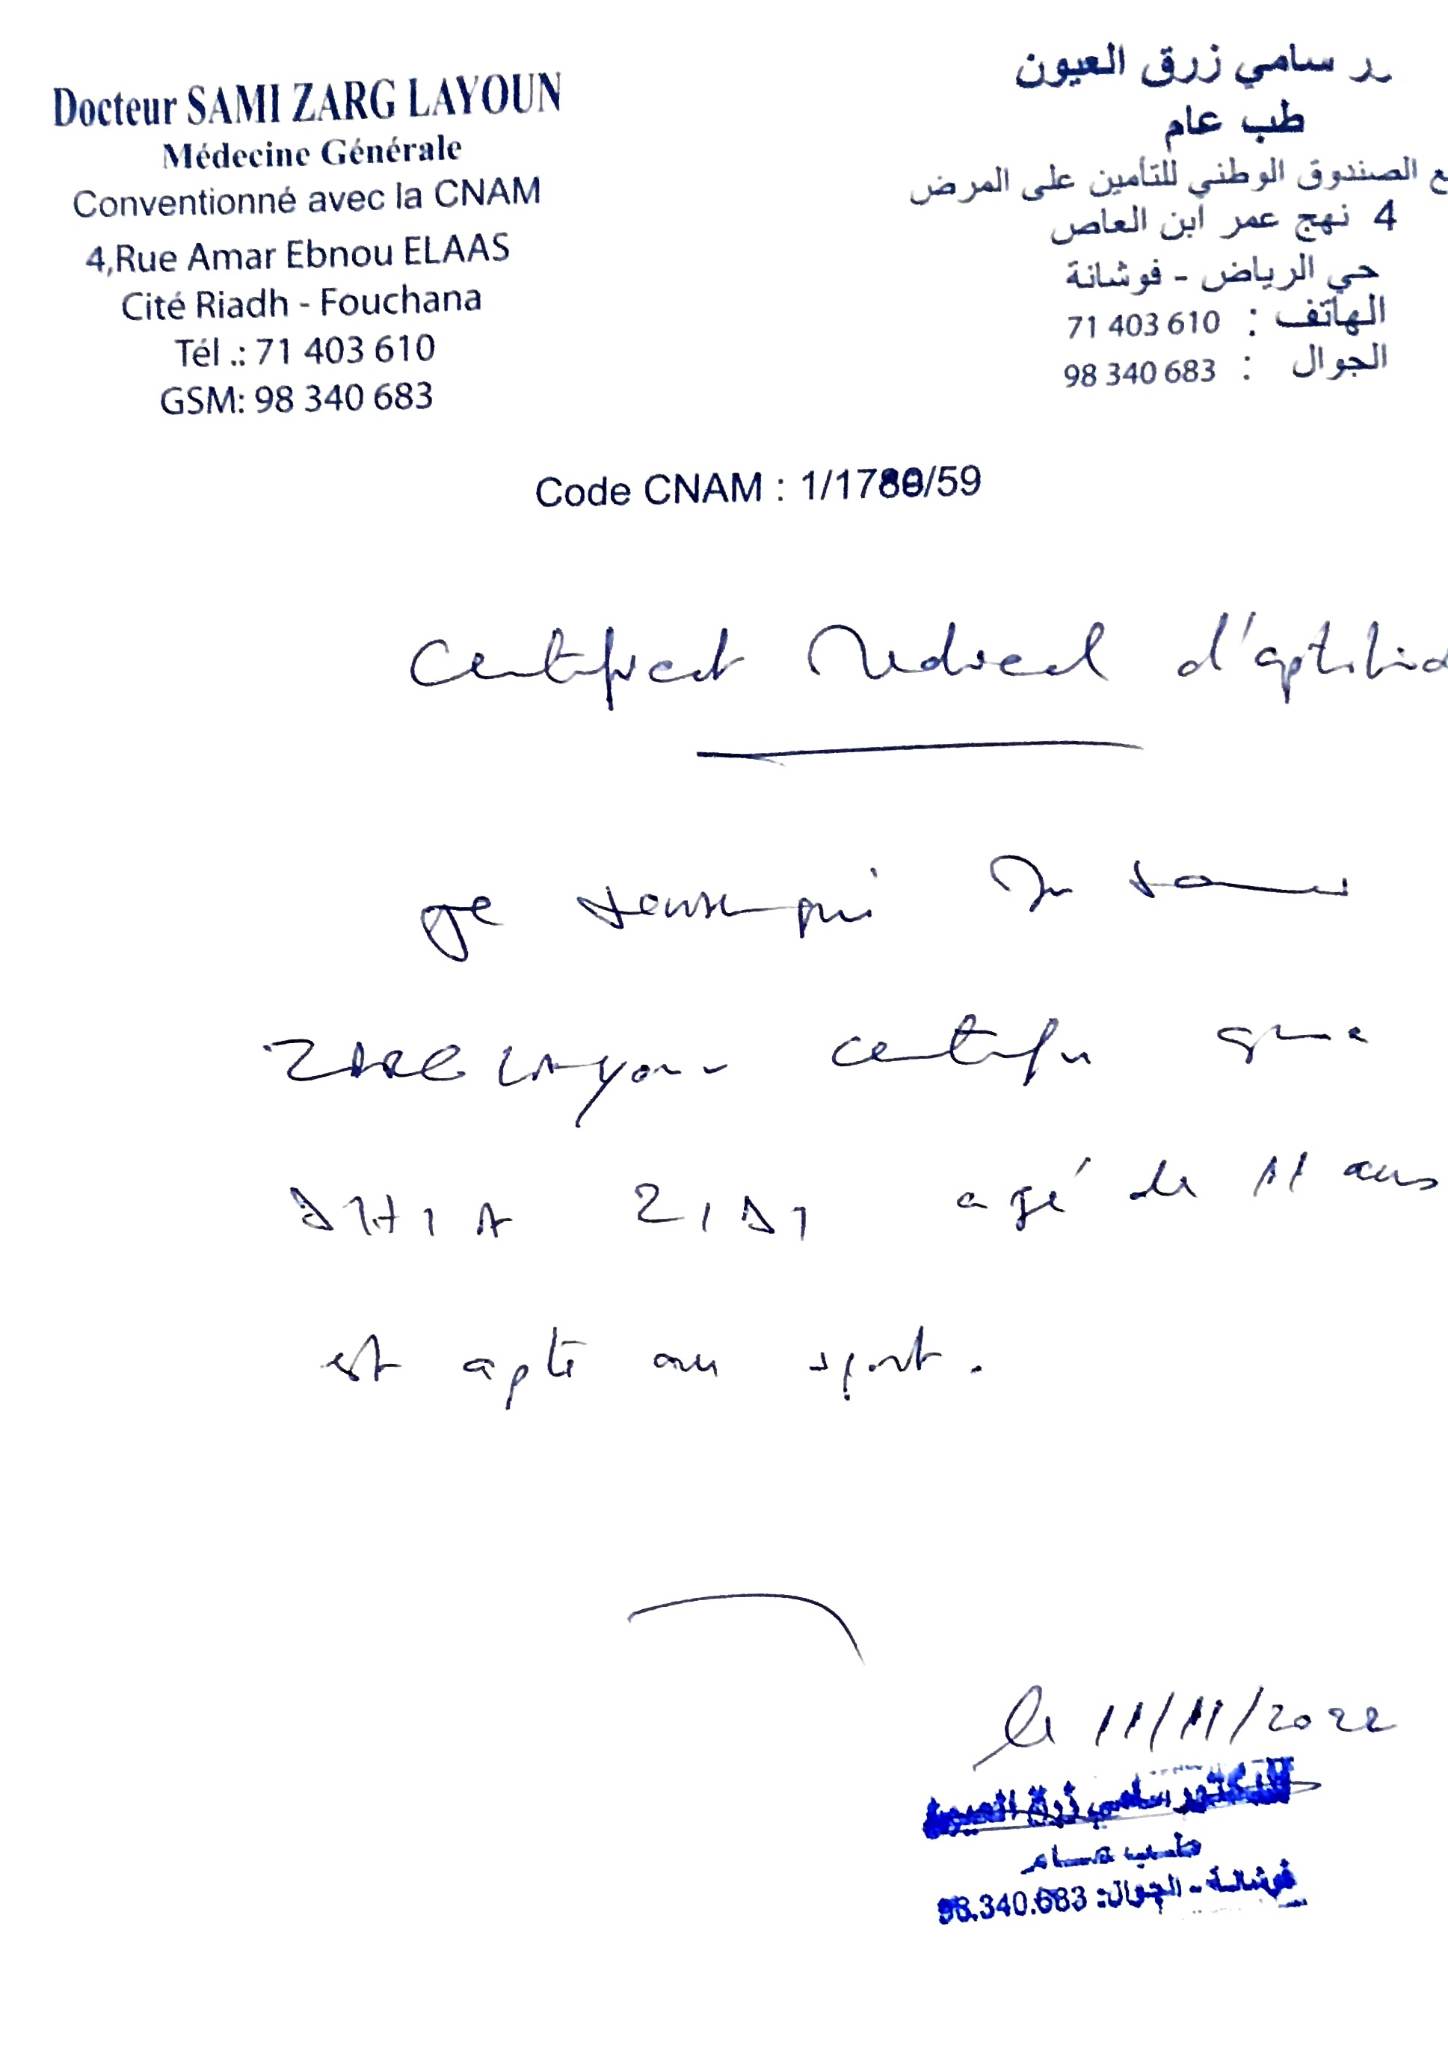 Docteur SAMI ZARG LAYOUN
Médecine Générale
Conventionné avec la CNAM
4,Rue Amar Ebnou ELAAS
Cité Riadh - Fouchana
Tél .: 71 403 610
GSM: 98 340 683
سامي زرق العيون
طب عام
ع الصندوق الوطني للتأمين على المرض
4 نهج عمر ابن العاص
حي الرياض - فوشانة
الهاتف : 71 403 610
الجوال : 98 340 683
Code CNAM : 1/1788/59
Certificat Medical d'aptitud
Je soussigné Dr Sami
ZARG LAYOUN certifie que
DHIA ZIDI agé de 11 ans
est apte au sport.
le 11/11/2022
الدكتور سامي زرق العيون
طب عام
فوشانة - الجوال: 98.340.683